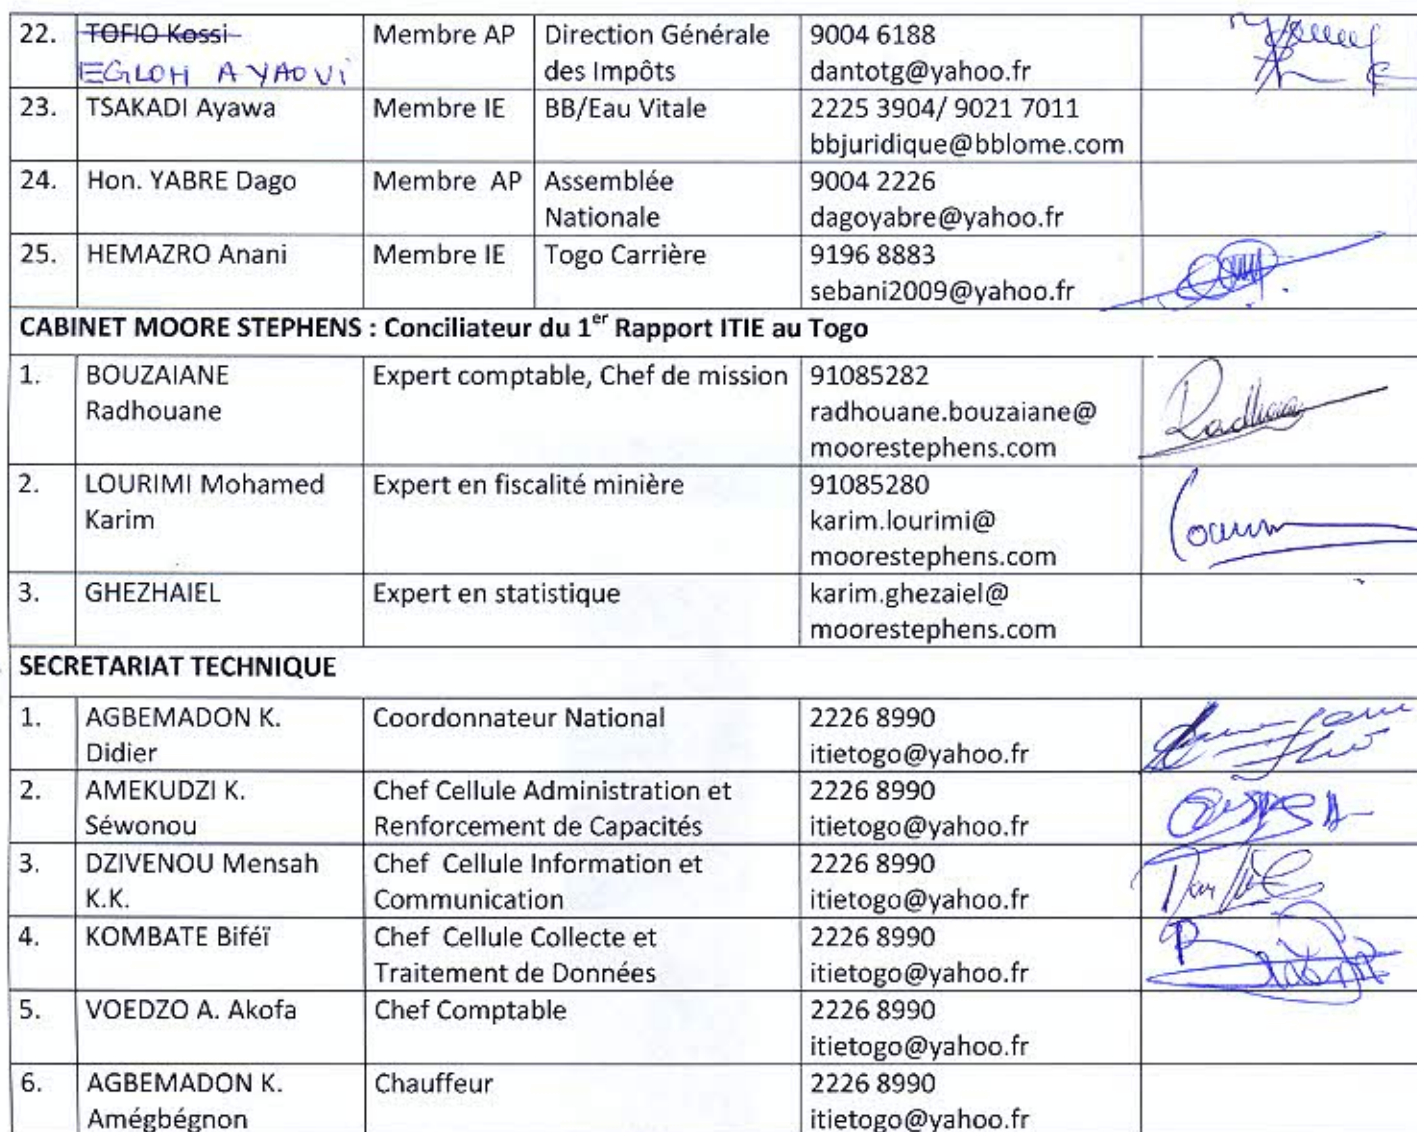 22. TOFIO Kossi Membre AP Direction Générale 9004 6188
EGLOH AYAOVI des Impôts dantotg@yahoo.fr
23. TSAKADI Ayawa Membre IE BB/Eau Vitale 2225 3904/ 9021 7011
bbjuridique@bblome.com
24. Hon. YABRE Dago Membre AP Assemblée 9004 2226
Nationale dagoyabre@yahoo.fr
25. HEMAZRO Anani Membre IE Togo Carrière 9196 8883
sebani2009@yahoo.fr
CABINET MOORE STEPHENS : Conciliateur du 1er Rapport ITIE au Togo
1. BOUZAIANE Expert comptable, Chef de mission 91085282
Radhouane radhouane.bouzaiane@
moorestephens.com
2. LOURIMI Mohamed Expert en fiscalité minière 91085280
Karim karim.lourimi@
moorestephens.com
3. GHEZHAIEL Expert en statistique karim.ghezaiel@
moorestephens.com
SECRETARIAT TECHNIQUE
1. AGBEMADON K. Coordonnateur National 2226 8990
Didier itietogo@yahoo.fr
2. AMEKUDZI K. Chef Cellule Administration et 2226 8990
Séwonou Renforcement de Capacités itietogo@yahoo.fr
3. DZIVENOU Mensah Chef Cellule Information et 2226 8990
K.K. Communication itietogo@yahoo.fr
4. KOMBATE Biféï Chef Cellule Collecte et 2226 8990
Traitement de Données itietogo@yahoo.fr
5. VOEDZO A. Akofa Chef Comptable 2226 8990
itietogo@yahoo.fr
6. AGBEMADON K. Chauffeur 2226 8990
Amégbégnon itietogo@yahoo.fr